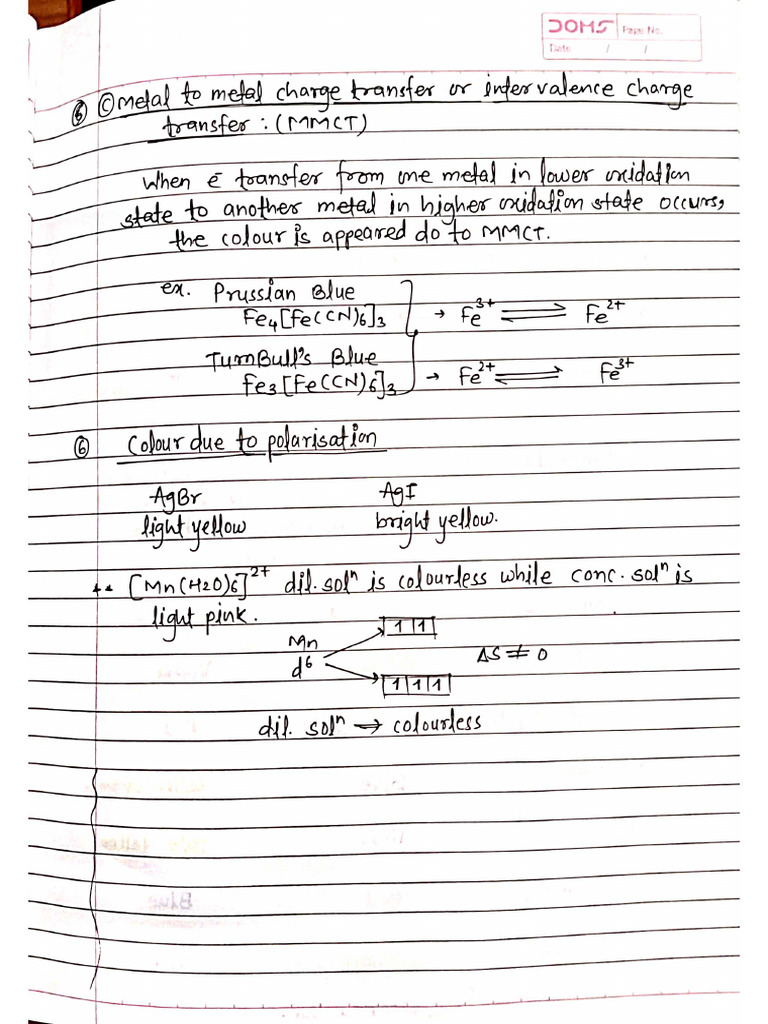 DOMS Page No.
Date / /
⑤ Ⓒ Metal to metal charge transfer or intervalence charge
transfer : (MMCT)
When e̅ transfer from one metal in lower oxidation
state to another metal in higher oxidation state occurs,
the colour is appeared do to MMCT.
ex. Prussian Blue
Fe4[Fe(CN)6]3 → Fe³⁺ ⇌ Fe²⁺
TurnBull's Blue
Fe3[Fe(CN)6]3 → Fe²⁺ ⇌ Fe³⁺
⑥ Colour due to polarisation
AgBr AgI
light yellow bright yellow.
** [Mn(H2O)6]²⁺ dil. solⁿ is colourless while conc. solⁿ is
light pink.
1 1
Mn
d⁶ ΔS ≠ 0
1 1 1
dil. solⁿ → colourless